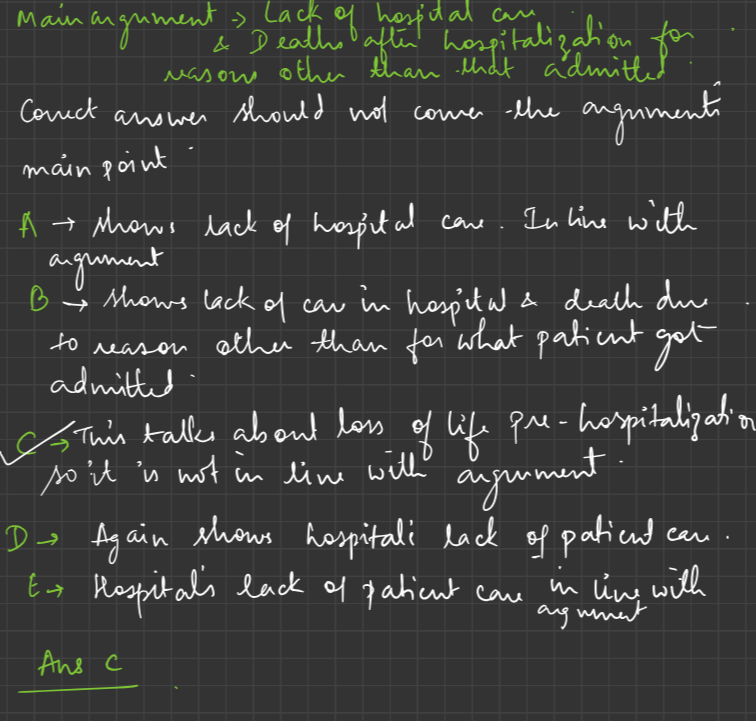 Main argument → Lack of hospital care
& Deaths after hospitalization for
reasons other than that admitted.
Correct answer should not cover the argument's
main point.
A → shows lack of hospital care. In line with
argument
B → shows lack of care in hospital & death due
to reason other than for what patient got
admitted.
C → This talks about loss of life pre-hospitalization
so it is not in line with argument.
D → Again shows hospitals lack of patient care.
E → Hospital's lack of patient care in line with
argument
Ans C